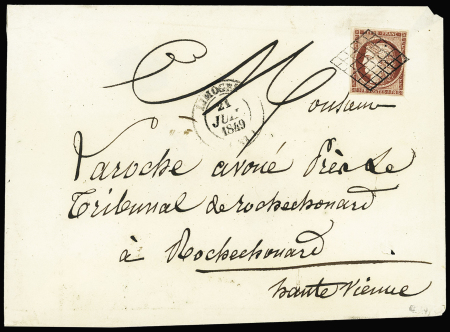 REPUB. FRANC.
LIMOGES
21
JUIL.
1849
Monsieur
Laroche avoué Près Le
Tribunal de rochechouard
à Rochechouard
haute Vienne